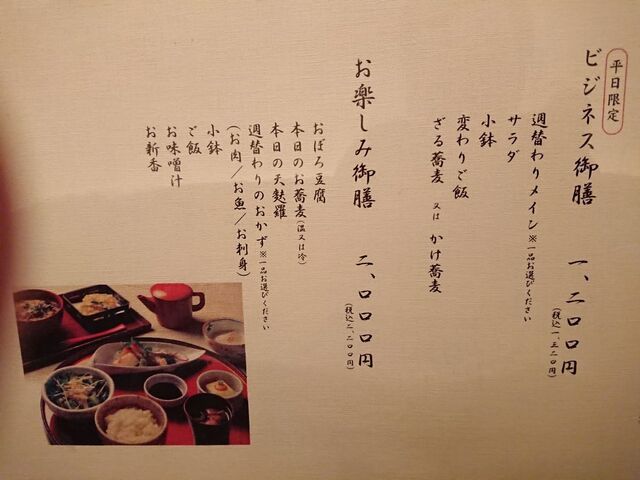 平日限定
ビジネス御膳 一、二〇〇円
(税込一、三二〇円)
週替わりメイン※一品お選びください
サラダ
小鉢
変わりご飯
ざる蕎麦 又は かけ蕎麦
お楽しみ御膳 二、〇〇〇円
(税込二、二〇〇円)
おぼろ豆腐
本日のお蕎麦(温又は冷)
本日の天麩羅
週替わりのおかず※一品お選びください
(お肉/お魚/お刺身)
小鉢
ご飯
お味噌汁
お新香